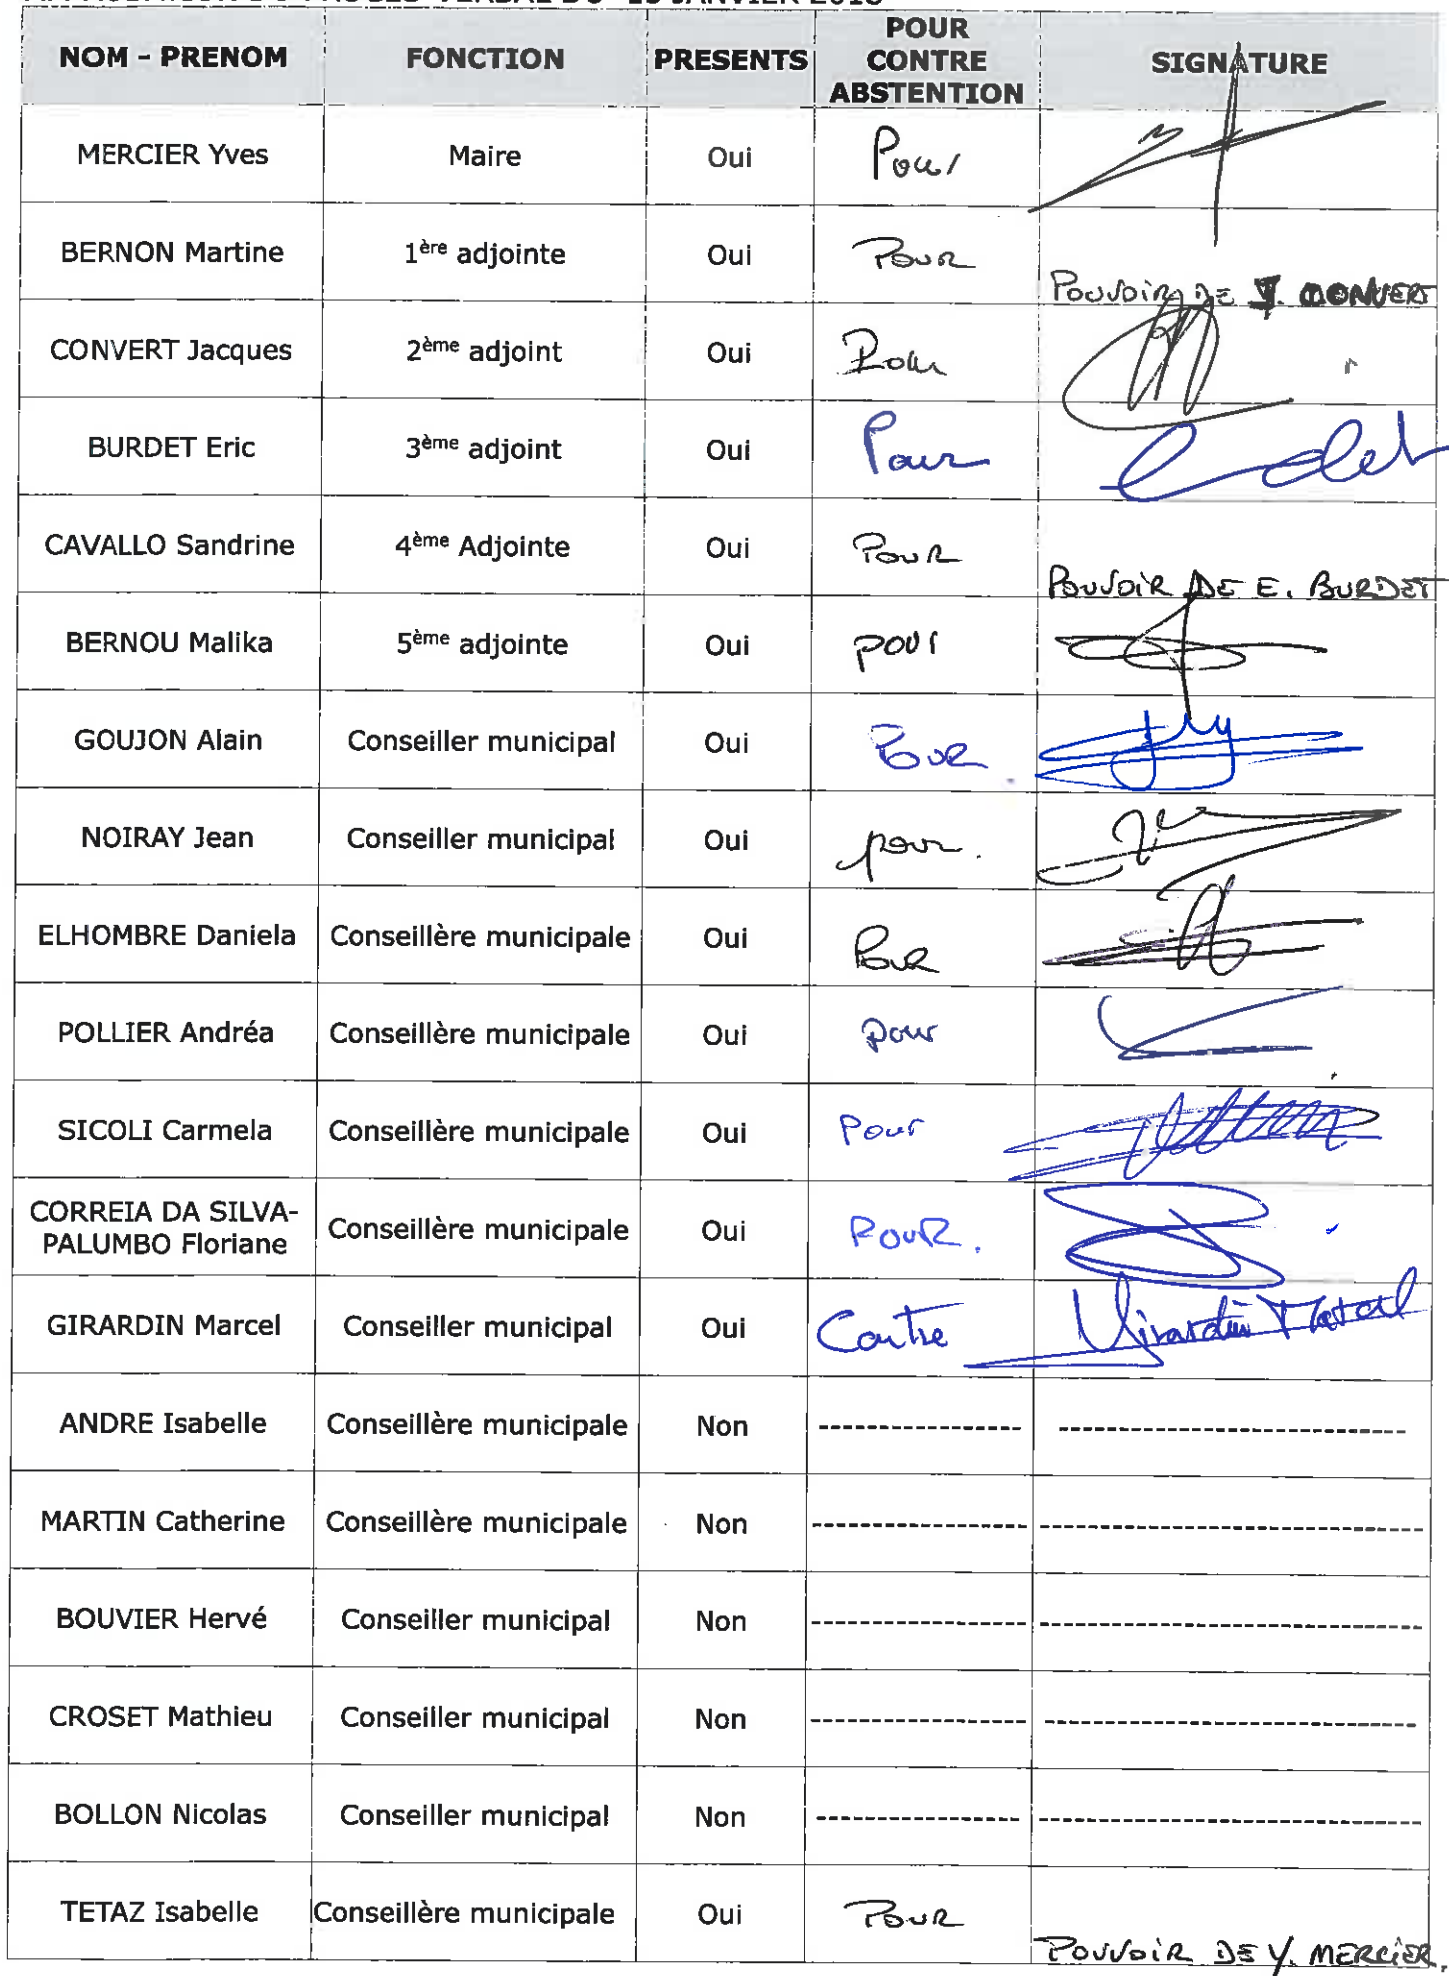 NOM - PRENOM FONCTION PRESENTS POUR CONTRE ABSTENTION SIGNATURE
MERCIER Yves Maire Oui Pour
BERNON Martine 1ère adjointe Oui Pour POUVOIR DE J. CONVERT
CONVERT Jacques 2ème adjoint Oui Pour
BURDET Eric 3ème adjoint Oui Pour
CAVALLO Sandrine 4ème Adjointe Oui Pour POUVOIR DE E. BURDET
BERNOU Malika 5ème adjointe Oui pour
GOUJON Alain Conseiller municipal Oui POUR.
NOIRAY Jean Conseiller municipal Oui pour.
ELHOMBRE Daniela Conseillère municipale Oui Pour
POLLIER Andréa Conseillère municipale Oui pour
SICOLI Carmela Conseillère municipale Oui Pour
CORREIA DA SILVA-
PALUMBO Floriane Conseillère municipale Oui POUR.
GIRARDIN Marcel Conseiller municipal Oui Contre Girardin Marcel
ANDRE Isabelle Conseillère municipale Non
MARTIN Catherine Conseillère municipale Non
BOUVIER Hervé Conseiller municipal Non
CROSET Mathieu Conseiller municipal Non
BOLLON Nicolas Conseiller municipal Non
TETAZ Isabelle Conseillère municipale Oui Pour POUVOIR DE Y. MERCIER.